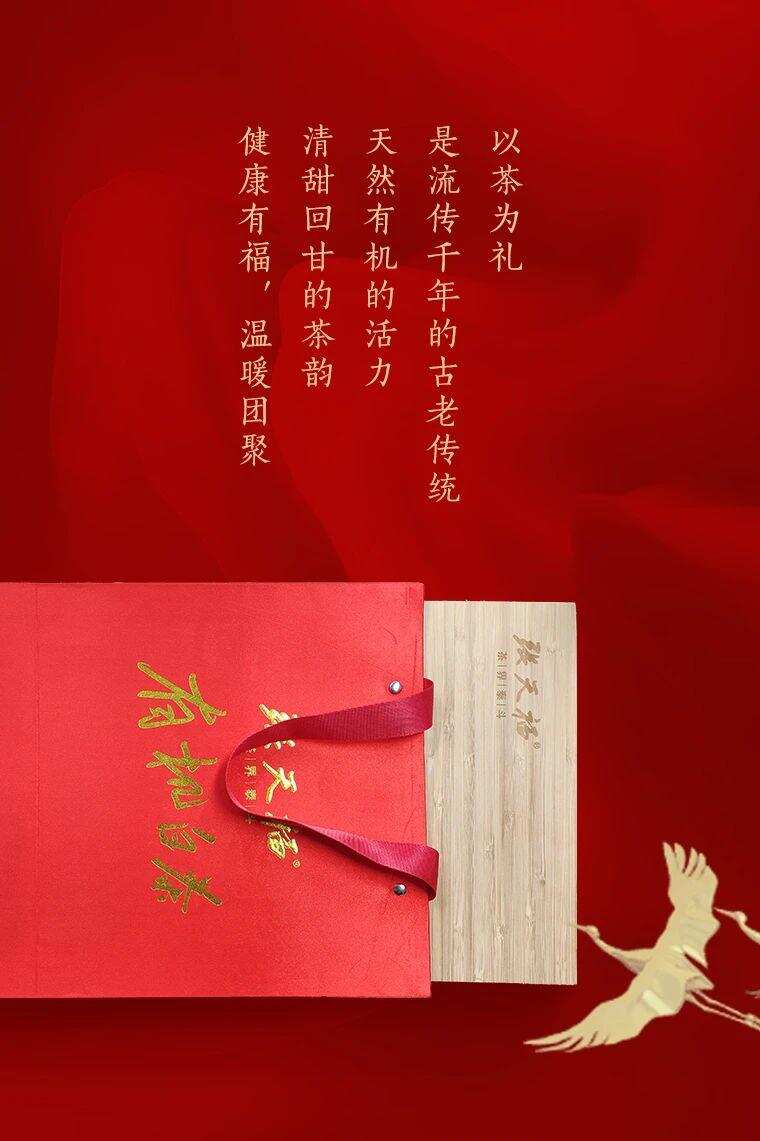 以茶为礼
是流传千年的古老传统
天然有机的活力
清甜回甘的茶韵
健康有福，温暖团聚
张天福
茶|界|泰|斗
张天福
茶|界|泰|斗
有机白茶